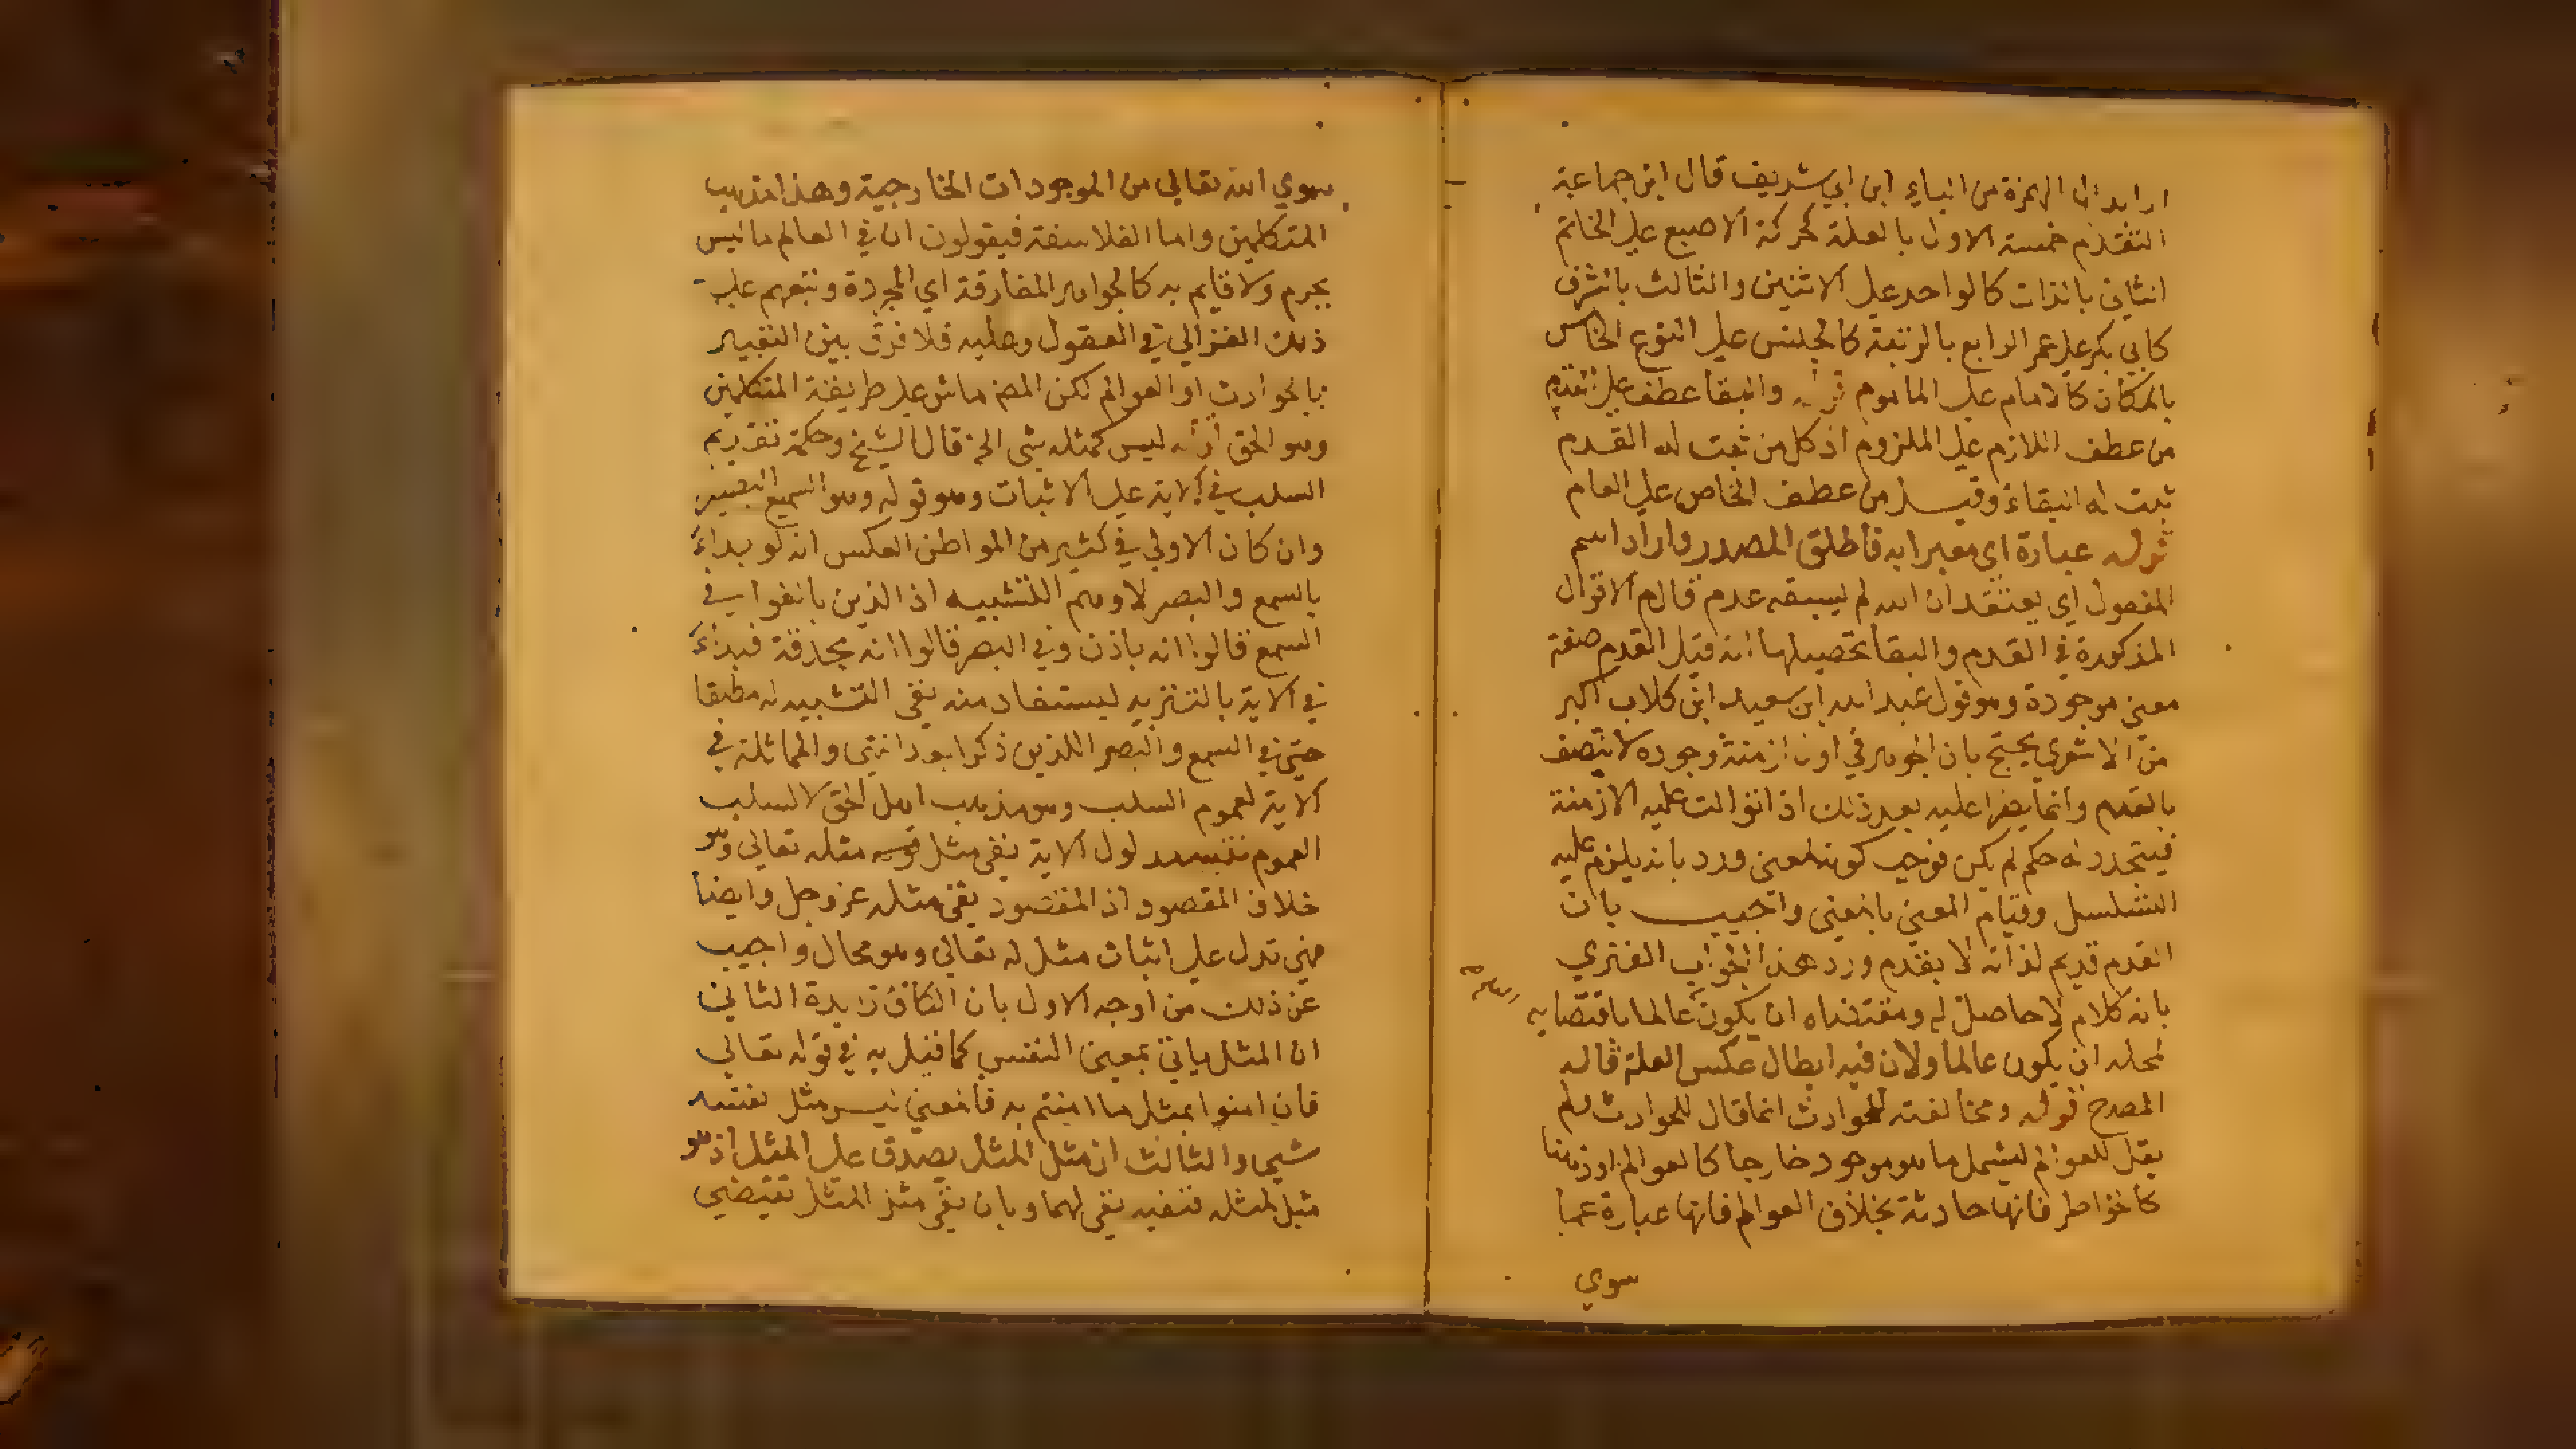 او ابدال الهمزة من الياء ابن ابي شريف قال ابن جماعة
التقدم خمسة الاول بالعلة كحركة الاصبع علي الخاتم
الثاني بالذات كالواحد علي الاثنين والثالث بالشرف
كابي بكر علي عمر الرابع بالرتبة كالجنس علي النوع الخامس
بالمكان كالامام علي الماموم قوله والبقا عطف علي القدم
من عطف اللازم علي الملزوم اذ كل من ثبت له القدم
ثبت له البقاء وقيل من عطف الخاص علي العام
قوله عبارة اي معبرا به فاطلق المصدر واراد اسم
المفعول اي يعتقد ان الله لم يسبقه عدم الاقوال
المذكورة في القدم والبقا تحصيلها انه قيل القدم صفة
معني موجودة وهو قول عبد الله ابن سعيد ابن كلاب اكبر
من الاشعري يحتج بان الجوهر في اول ازمنة وجوده لا يتصف
بالقدم وانما يطرا عليه بعد ذلك اذا توالت عليه الازمنة
فيتجدد له حكم لم يكن فوجب كونه لمعني ورد بانه يلزم عليه
التسلسل وقيام المعني بالمعني واجيب بان
القدم قديم لذاته لا بقدم ورد هذا الجواب الفهري
بانه كلام لا حاصل له ومقتضاه ان يكون عالما باقتضايه
لمحله ان يكون عالما ولان فيه ابطال عكس العلة قاله
المصرح قوله ومخالفته للحوادث انما قال للحوادث ولم
يقل للعوالم ليشمل ما هو موجود خارجا كالعوالم او ذهنا
كالخواطر فانها حادثة بخلاف العوالم فانها عبارة عما
سوي
سوي الله تعالي من الموجودات الخارجية وهذا مذهب
المتكلمين واما الفلاسفة فيقولون ان في العالم ما ليس
بجرم ولا قايم به كالجواهر المفارقة اي المجردة وتبعهم علي
ذلك الغزالي في العقول وعليه فلا فرق بين التعبير
بالحوادث او العوالم لكن المص ماش علي طريقة المتكلمين
وهو الحق قوله ليس كمثله شي الخ قال الشيخ وحكمة تقديم
السلب في الاية علي الاثبات وهو قوله وهو السميع البصير
وان كان الاولي في كثير من المواطن العكس انه لو بداء
بالسمع والبصر لاوهم التشبيه اذ الذين بالغوا في
السمع قالوا انه باذن وفي البصر قالوا انه بحدقة فبداء
في الاية بالتنزيه ليستفاد منه نفي التشبيه له مطلقا
حتي في السمع والبصر اللذين ذكرا بعد انتهي والمماثلة في
الاية لعموم السلب وهو مذهب اهل الحق لا لسلب
العموم مدلول الاية نفي مثل مثله تعالي وهو
خلاف المقصود اذ المقصود نفي مثله عز وجل وايضا
فهي تدل علي اثبات مثل له تعالي وهو محال واجيب
عن ذلك من اوجه الاول بان الكاف زايدة الثاني
ان المثل ياتي بمعني النفس كما قيل به في قوله تعالي
فان امنوا بمثل ما امنتم به فالمعني ليس مثل نفسه
شيا والثالث ان مثل المثل يصدق علي المثل اذ هو
مثل لمثله فنفيه نفي لهما وبان نفي مثل المثل يقتضي